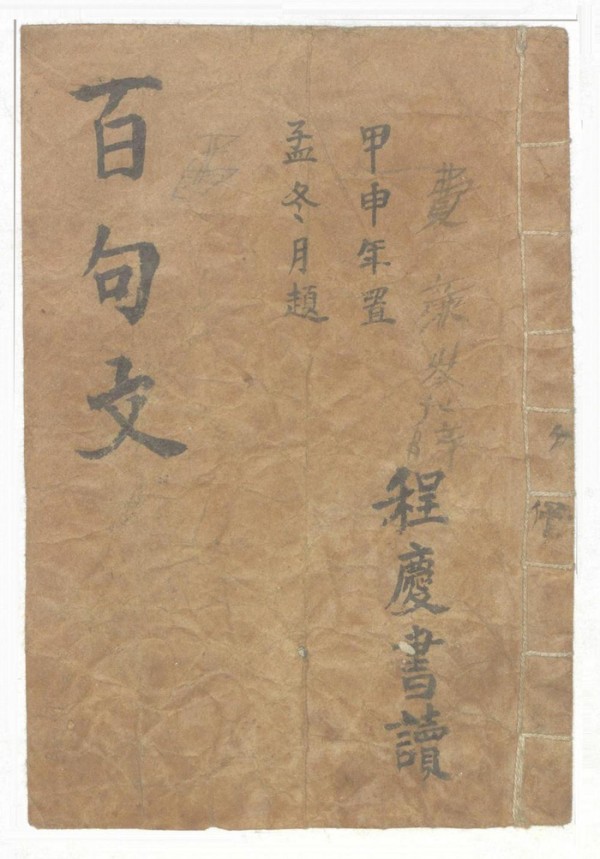 費
程慶書讀
甲申年置
孟冬月題
百句文